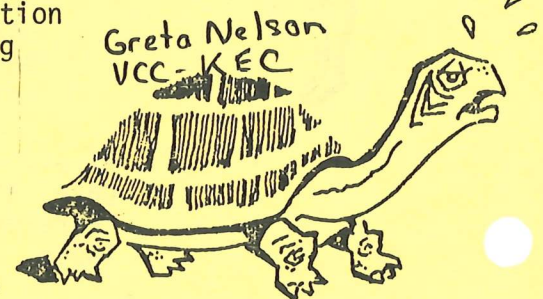 tion
g
Greta Nelson
VCC - KEC